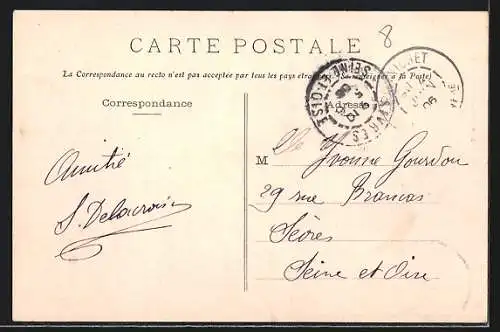 8
CARTE POSTALE
La Correspondance au recto n'est pas acceptée par tous les pays étrangers (Se renseigner à la Poste)
Correspondance
Adresse
SEINE-ET-OISE
SÈVRES
Amitié
S. Delacroix
M lle Yvonne Gourdon
29 rue Brancas
Sèvres
Seine et Oise